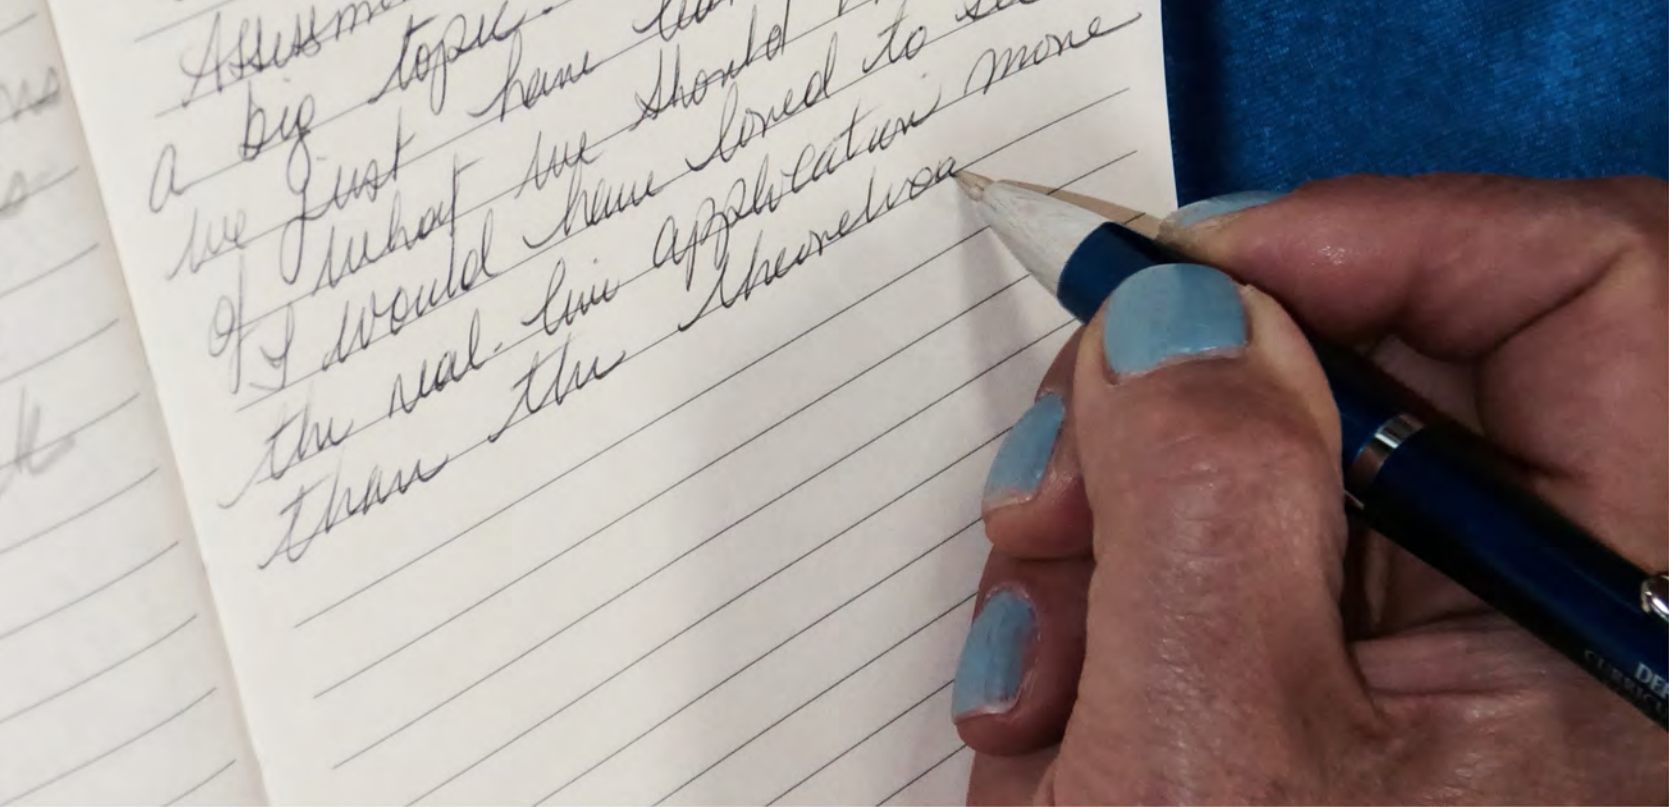 Assessme
a big topic.
we just have
of what we should
I would have loved to se
the real-live application more
than the theoretica
DEP
CURRICU